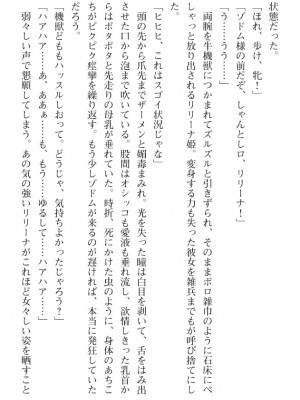 状態だった。
「ほれ、歩け、牝！」
「ゾドム様の前だぞ、しゃんとしロ、リリーナ！」
「う……うう……」
両腕を牛機獣につかまれてズルズルと引きずられ、そのままボロ雑巾のように石床にべ
しゃっと放り出されるリリーナ姫。変身する力も失った彼女を雑兵までもが呼び捨てにし
た。
「ヒヒヒ、これはスゴイ状況じゃな」
頭の先から爪先までザーメンと媚毒まみれ。光を失った瞳は白目を剥いて、舌をはみ出
させた口から泡まで吹いている。股間はオシッコも愛液も垂れ流し、欲情しきった乳首か
らはボタボタと先走りの母乳が垂れていた。時折、死にかけた虫のように、身体のあちこ
ちがピクピク痙攣を繰り返す。もう少しゾドムが来るのが遅ければ、本当に発狂していた
だろう。
「機獣どももハッスルしおって。どうじゃ、気持ちよかったじゃろう？」
「ハアハア……あ、あああ……も、もう……ゆるして……ハアハア……」
弱々しい声で懇願してしまう。あの気の強いリリーナがこれほど女々しい姿を晒すこと